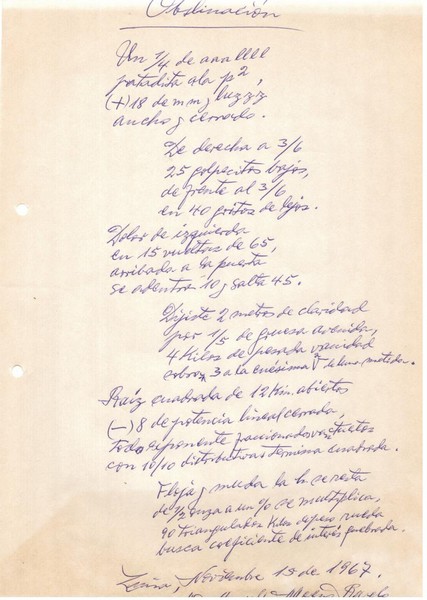 Obstinación
Un 1/4 de
patadita a la p²,
(+) 18 de m m y luzzz
ancho y cerrado.
De derecha a 3/6
25 golpecitos bajos,
de frente al 3/6
en 40 gritos de lejos.
Dolor de izquierda
en 15 vueltas de 65,
arribada a la puerta
se adentra 10 y salta 45.
Dijiste 2 metros de claridad
por 1/5 de gruesa avenida,
4 Kilos de pesada vanidad
3 a la enésima de luna metida.
Raíz cuadrada de 12 Km. abiertos
(-) 8 de potencia lineal cerrada,
todo exponente
con 10/10 distributivas termina cuadrada.
Floja y muda la h se resta
de 1/2 onza a un % se multiplica,
90 triangulados Kilos de peso rueda
busca coeficiente de interés quebrada.
Noviembre 19 de 1967.